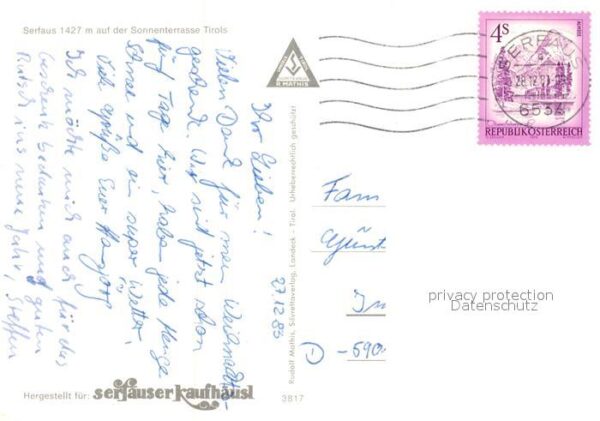 Serfaus 1427 m auf der Sonnenterrasse Tirols
Ihr Lieben!
Vielen Dank für mein Weihnachts-
geschenk. Wir sind jetzt schon
fünf Tage hier, haben jede Menge
Schnee und ein super Wetter.
Viele Grüße Euer
Ich möchte mich auch für das
Geschenk bedanken und guten
Rutsch ins neue Jahr, Steffen
27.12.83
R. MATHIS
Rudolf Mathis, Silvrettaverlag, Landeck - Tirol. Urheberrechtlich geschützt
Hergestellt für: serfauser kaufhäusl
3817
4S
REPUBLIK ÖSTERREICH
SERFAUS
6534
Fam
-590
privacy protection
Datenschutz